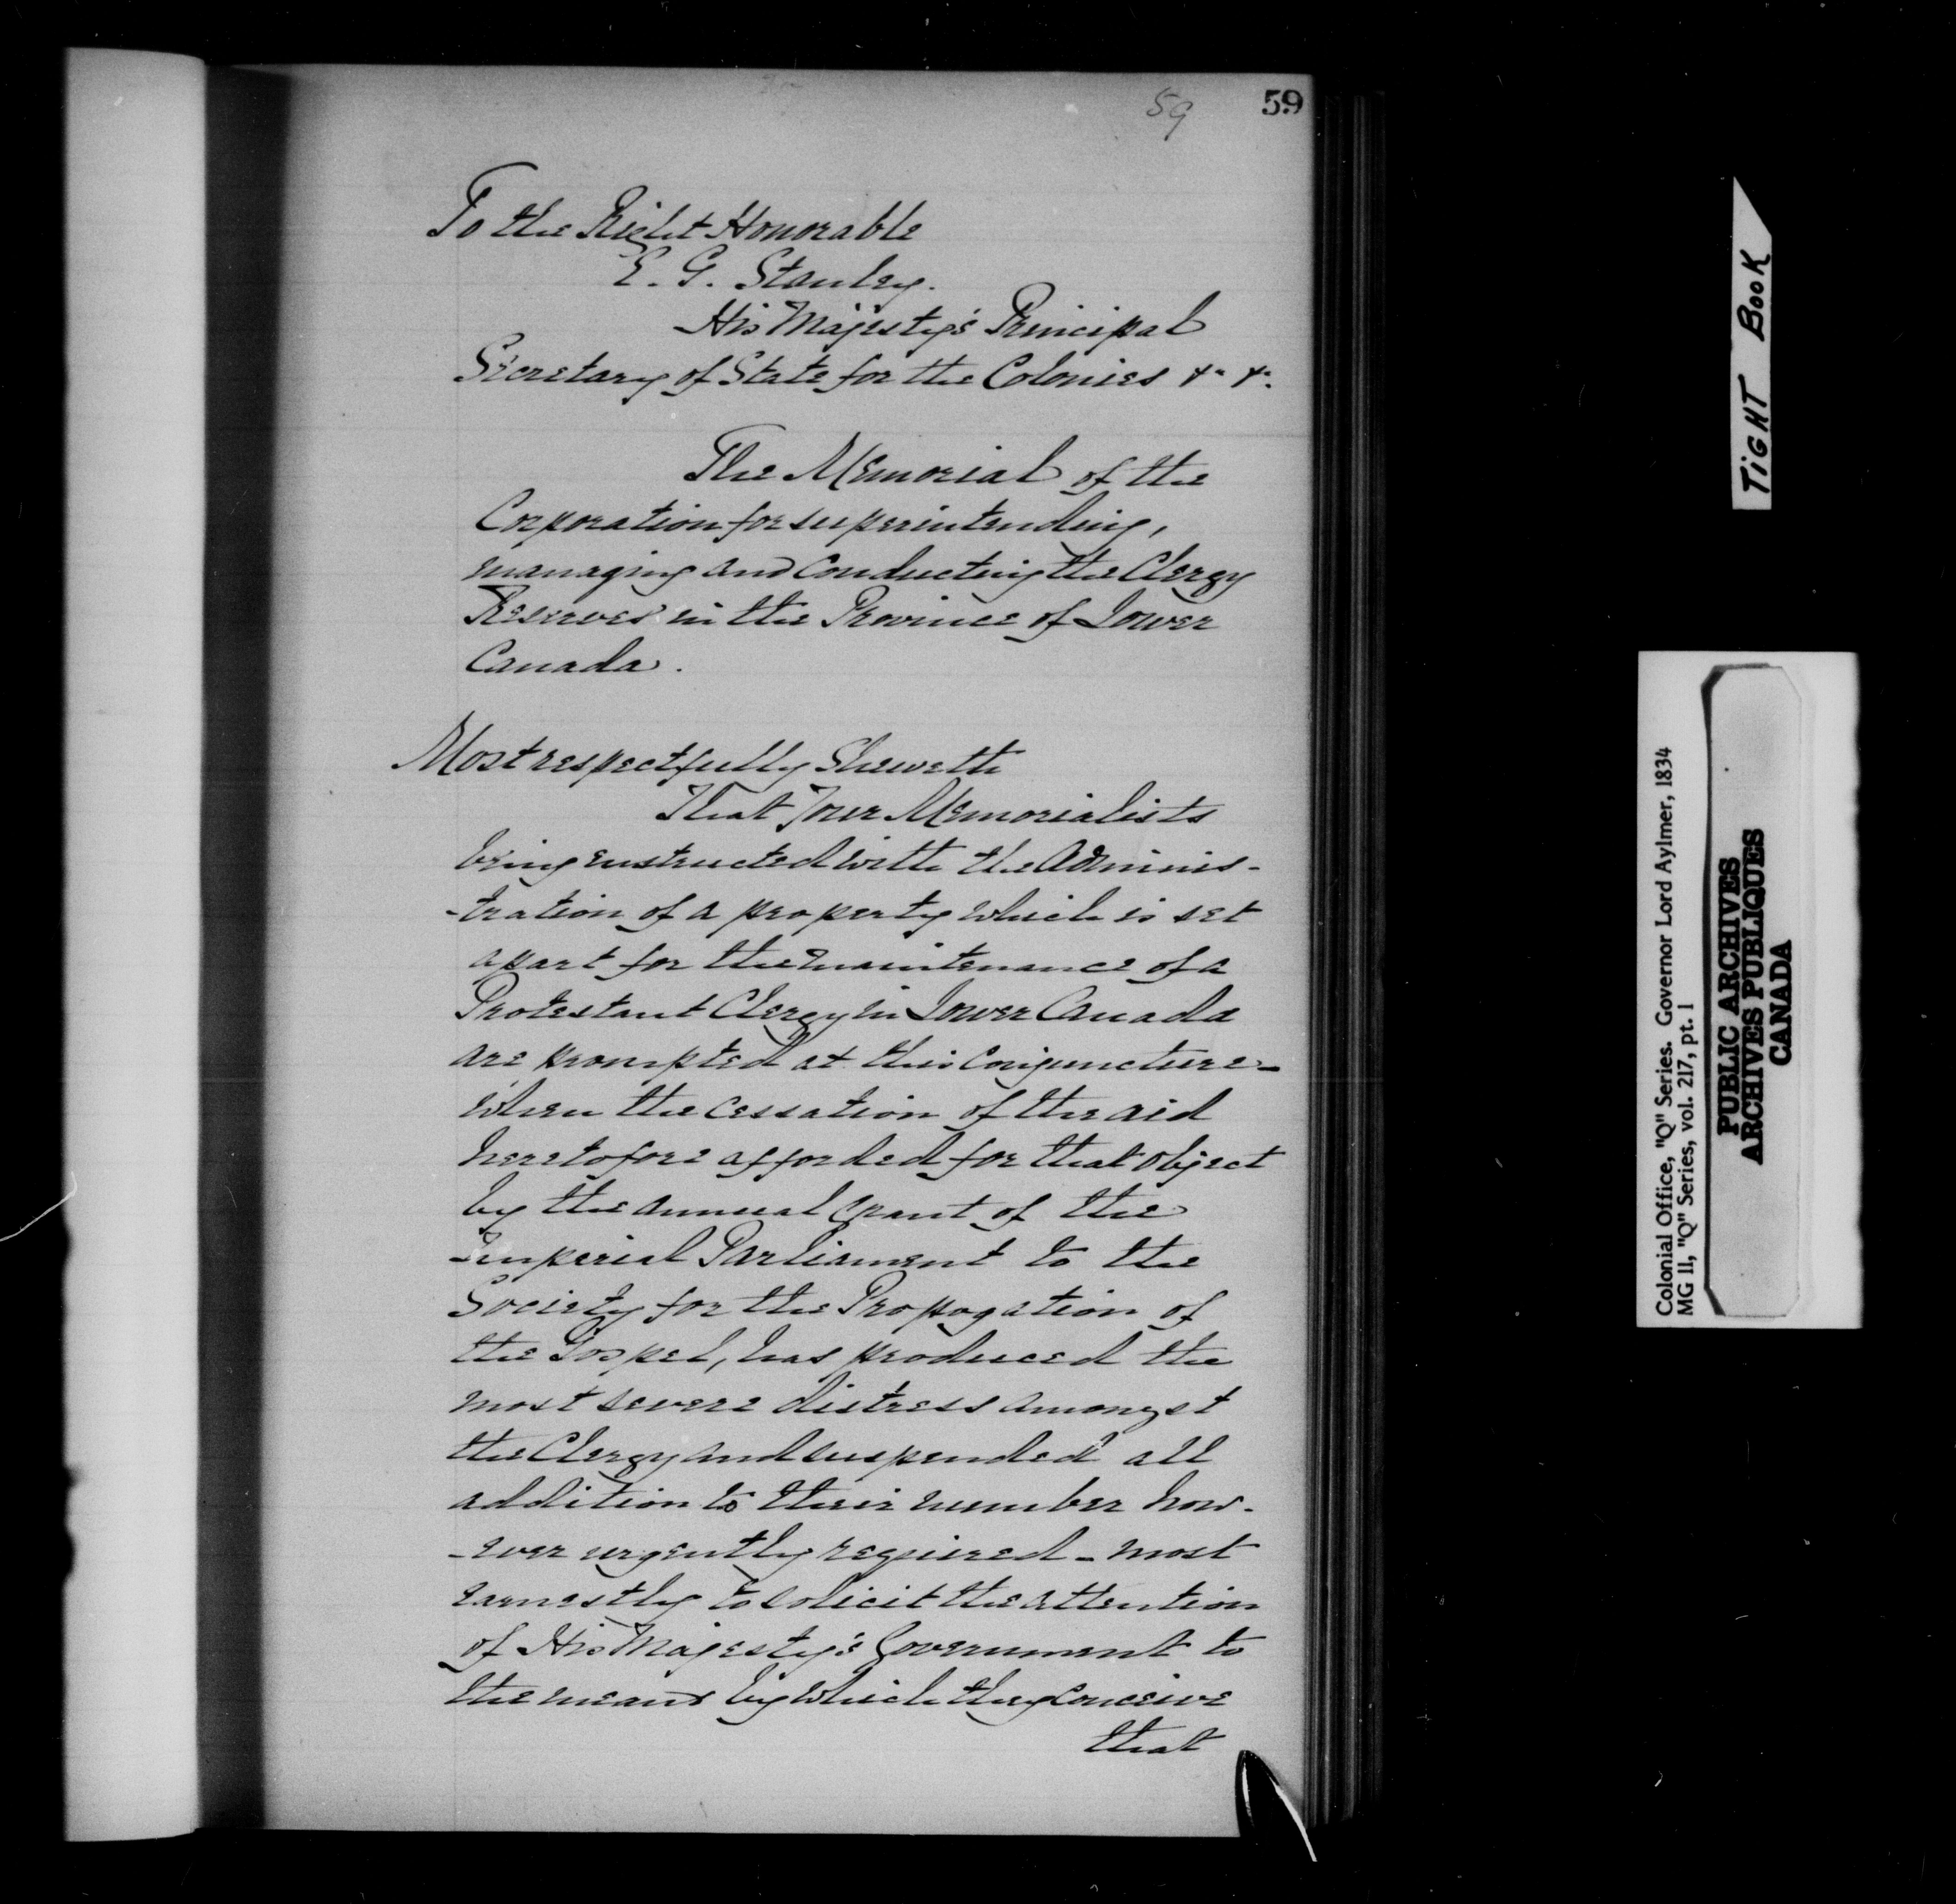 59
59
To the Right Honorable
E. G. Stanley.
His Majesty's Principal
Secretary of State for the Colonies &c &c.
The Memorial of the
Corporation for superintending,
managing and Conducting the Clergy
Reserves in the Province of Lower
Canada.
Most respectfully Sheweth
That Your Memorialists
being enstructed with the Adminis-
-tration of a property which is set
apart for the maintenance of a
Protestant Clergy in Lower Canada
are prompted at this conjuncture -
when the cessation of the aid
heretofore afforded for that object
by the annual grant of the
Imperial Parliament to the
Society for the Propogation of
the Gospel, has produced the
most severe distress amongst
the Clergy and suspended all
addition to their number how-
-ever urgently required - most
earnestly to solicit the attention
of His Majesty's Government to
the means by which they conceive
that
TIGHT BOOK
Colonial Office, "Q" Series. Governor Lord Aylmer, 1834
MG 11, "Q" Series, vol. 217, pt. 1
PUBLIC ARCHIVES
ARCHIVES PUBLIQUES
CANADA